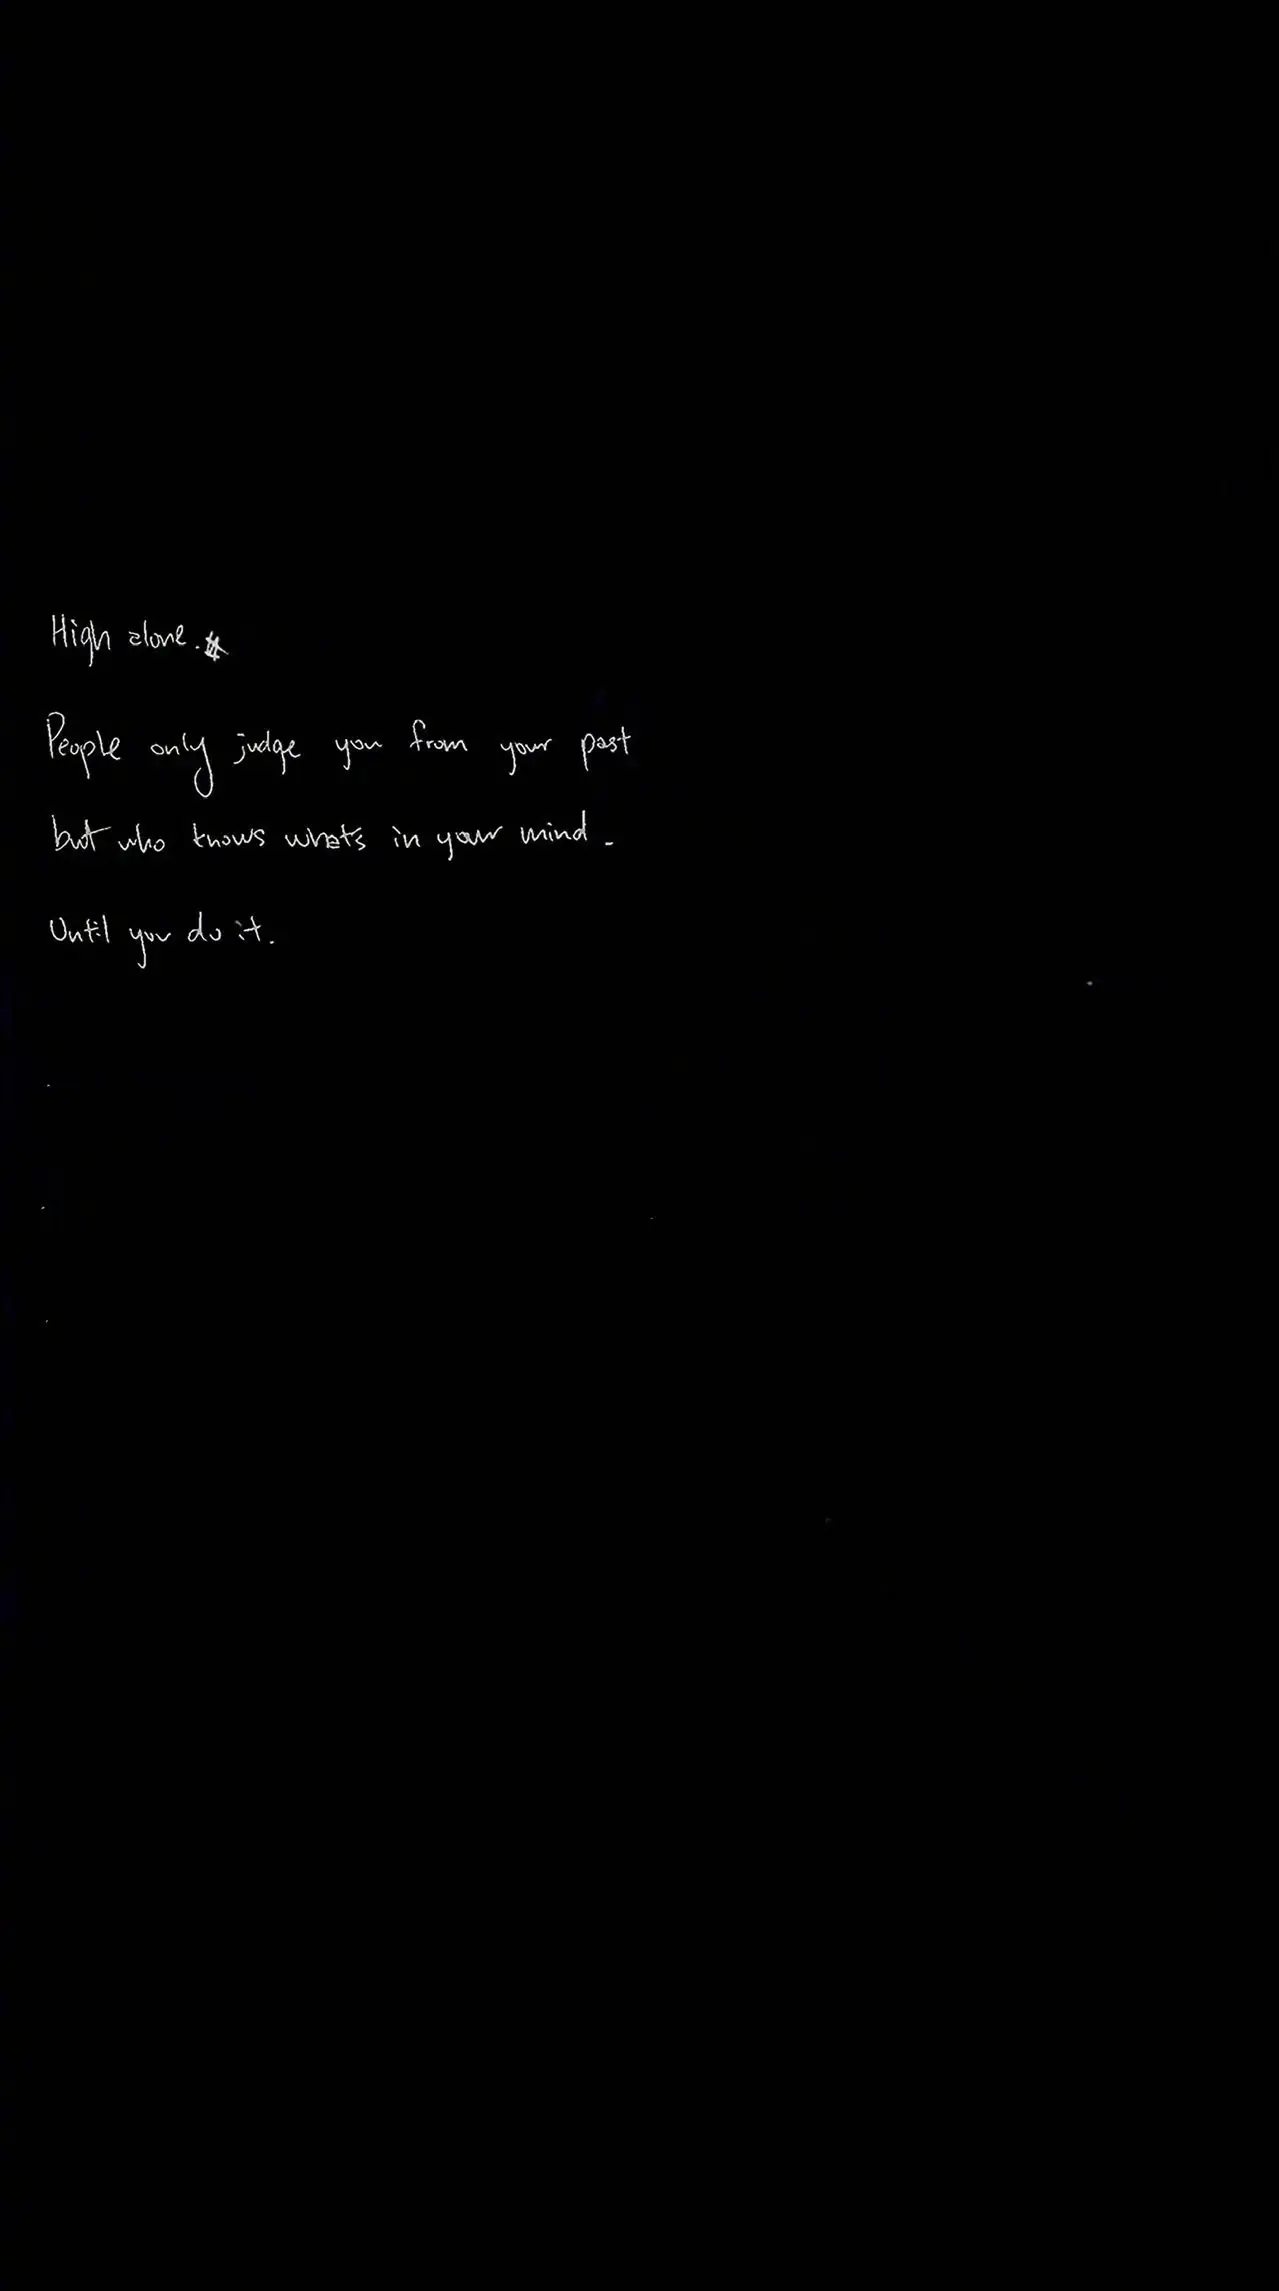 High alone.
People only judge you from your past
but who knows what's in your mind.
Until you do it.